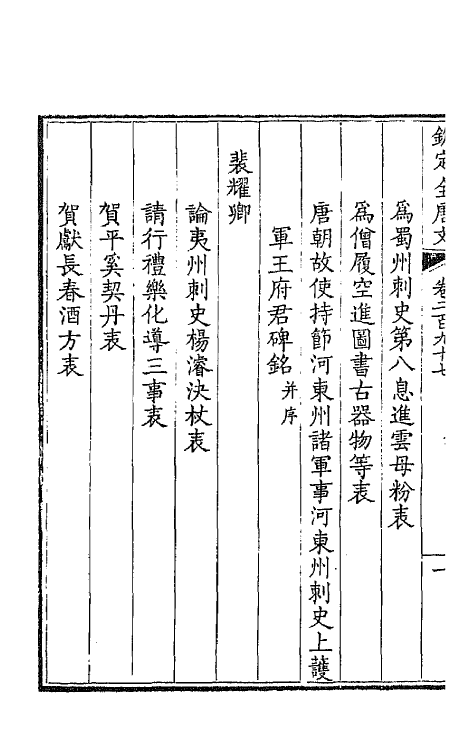 欽定全唐文 卷二百九十七 一
為蜀州刺史第八息進雲母粉表
為僧履空進圖書古器物等表
唐朝故使持節河東州諸軍事河東州刺史上護
軍王府君碑銘并序
裴耀卿
論夷州刺史楊濬決杖表
請行禮樂化導三事表
賀平奚契丹表
賀獻長春酒方表